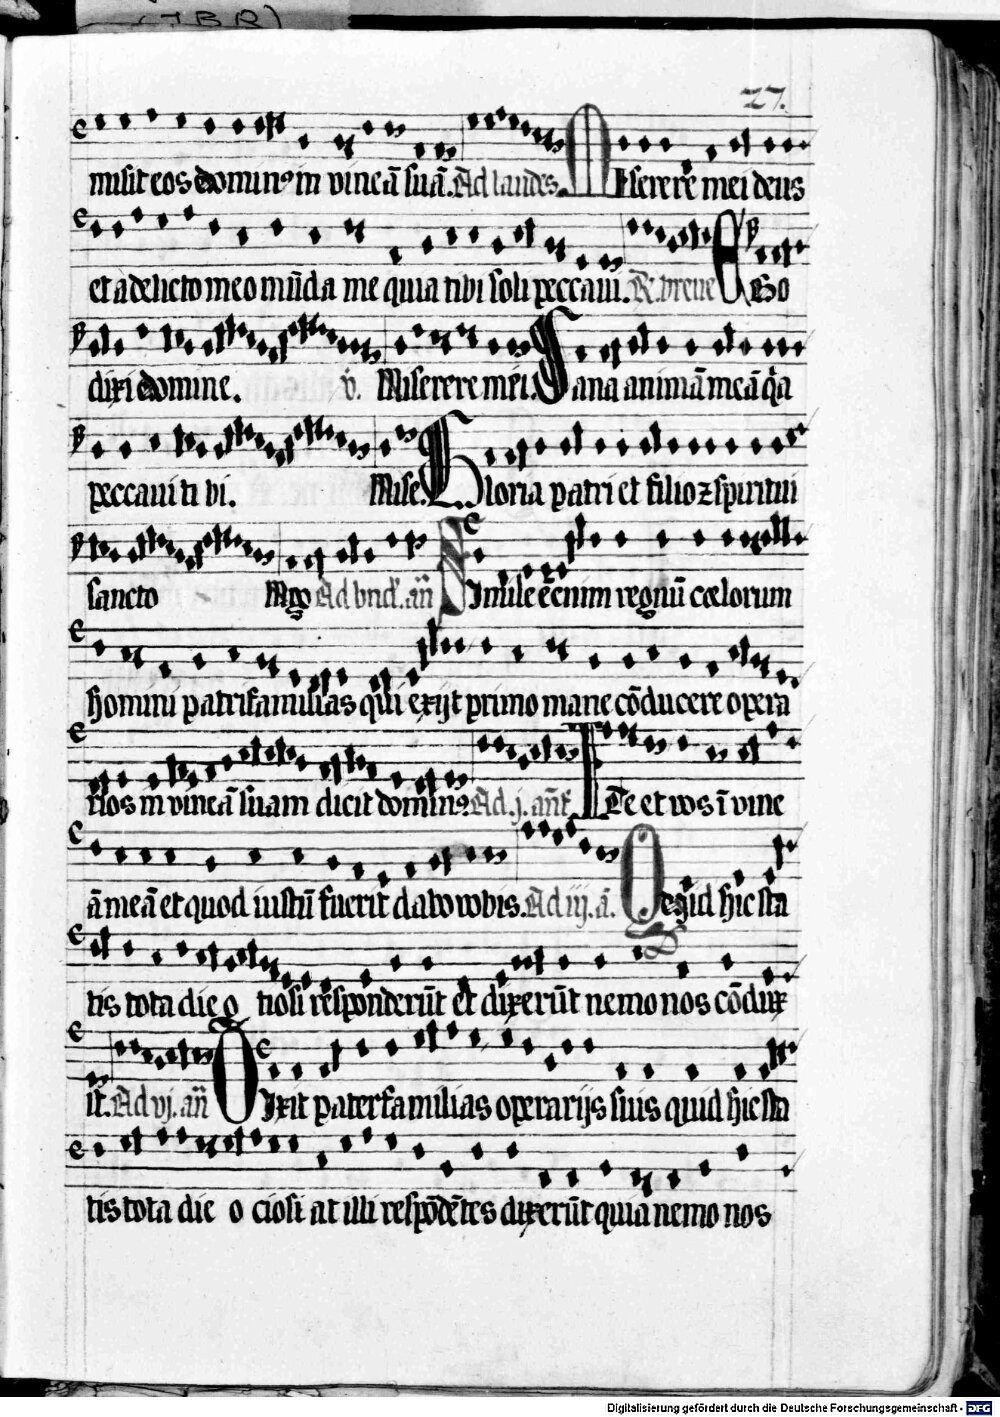 (JBR)
27.
misit eos dominꝰ in vineā suā. Ad laudes. Miserere mei deus
et a delicto meo mūda me quia tibi soli peccaui. R. breue Ego
dixi domine. v̄. Miserere mei. Sana animā meā q̄a
peccaui ti bi. Mise. Gloria patri et filio ⁊ spiritui
sancto Ad bnd̄. an̄ Simile ē enim regnū cœlorum
homini patrifamilias qui exijt primo mane cōducere opera
rios in vineā suam dicit dominꝰ. Ad. j. ant̄. Ite et vos ī vine
ā meā et quod iustū fuerit dabo vobis. Ad iij. ā. Quid hic sta
tis tota die o tiosi responderūt et dixerūt nemo nos cōdux
it. Ad vj. an̄ Dixit paterfamilias operarijs suis quid hic sta
tis tota die o ciosi at illi respōdētes dixerūt quia nemo nos
Digitalisierung gefördert durch die Deutsche Forschungsgemeinschaft - DFG